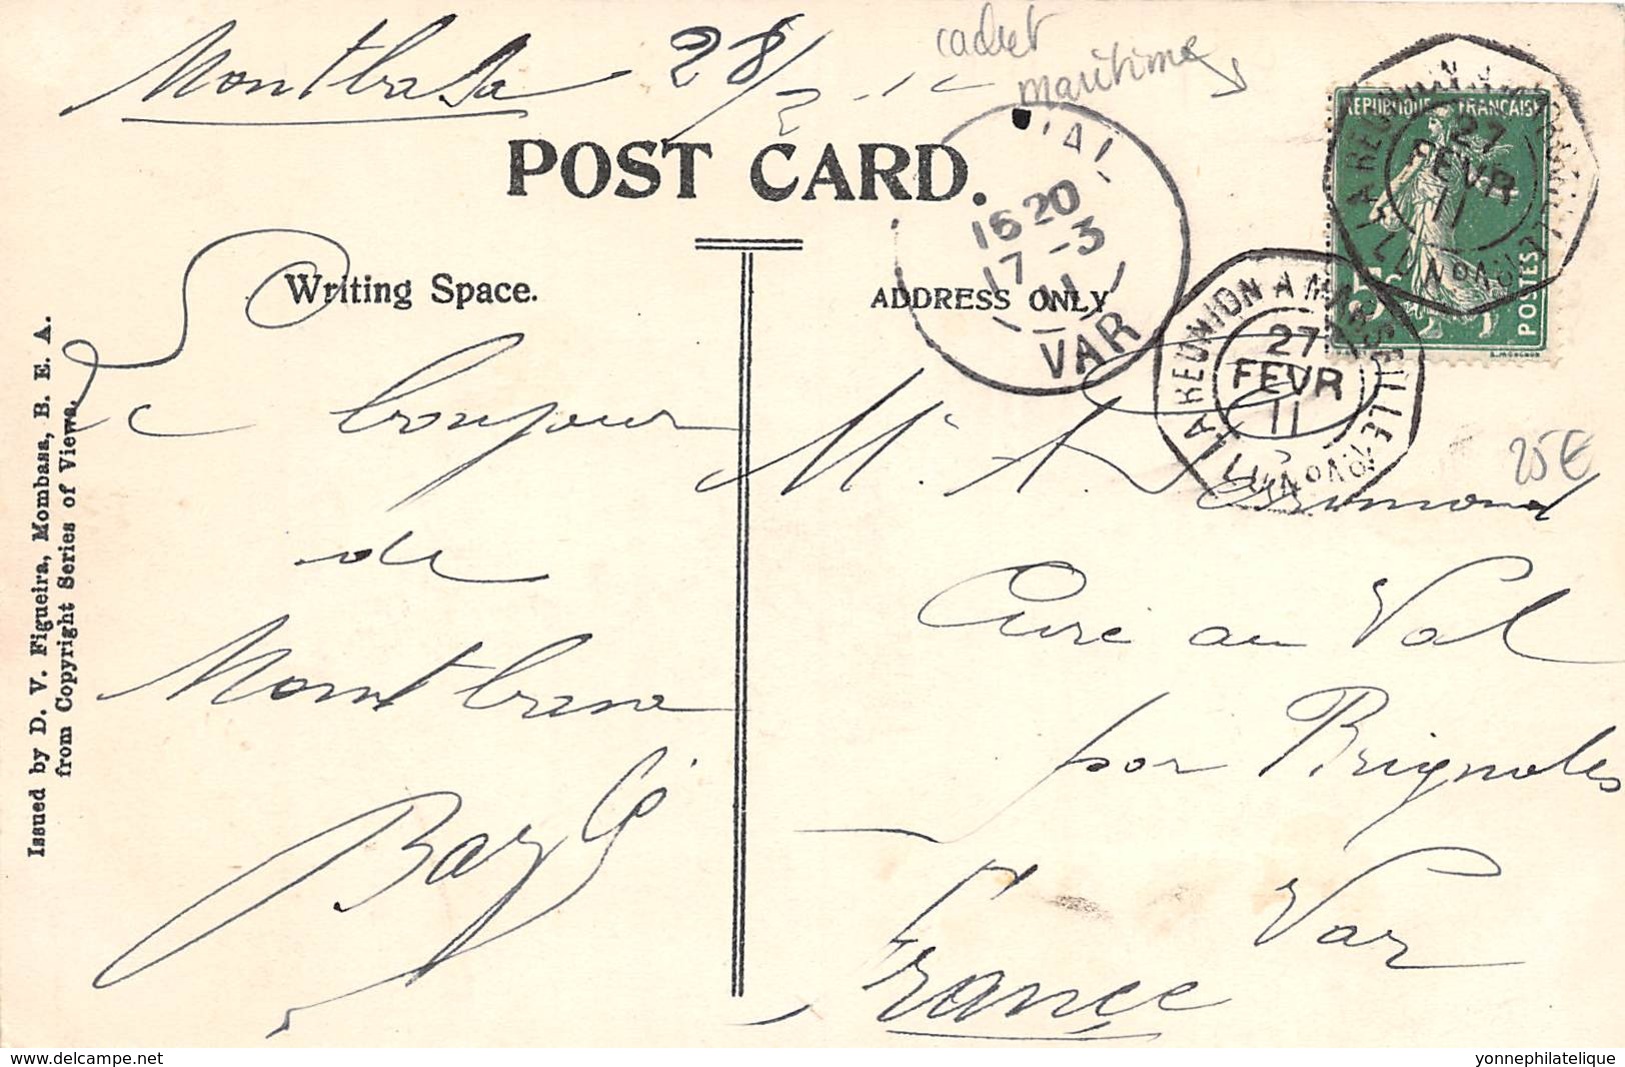 Montbasa 28/2
cachet
maritime
POST CARD.
Writing Space.
ADDRESS ONLY
Issued by D. V. Figueira, Mombasa, B. E. A.
from Copyright Series of Views.
REPUBLIQUE FRANÇAISE
5c
POSTES
LA REUNION A MARSEILLE
27
FEVR
11
L.U N°4
LA REUNION A MARSEILLE
27
FEVR
11
L.U N°4
1620
17-3
11
VAR
25€
Le bonjour
de
Montbasa
Mr. A.
Curé au Val
par Brignoles
Var
France
delcampe.net
yonnephilatelique